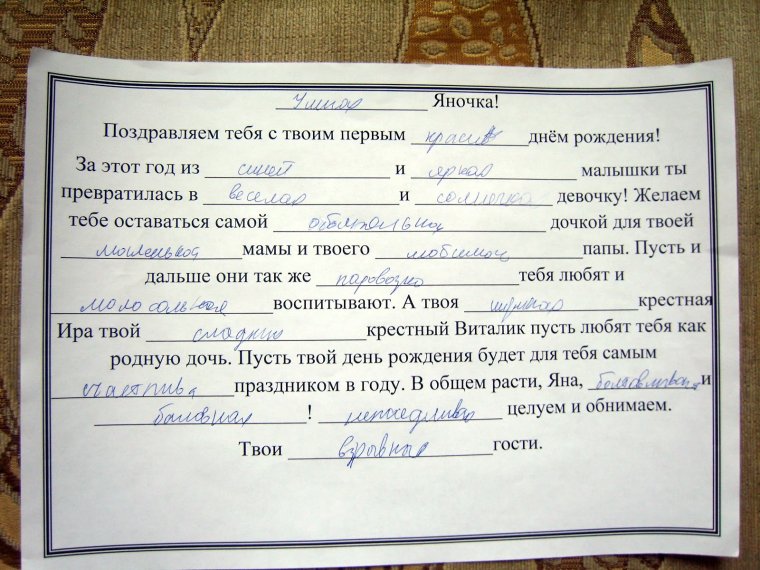 Умная Яночка!
Поздравляем тебя с твоим первым красив днём рождения!
За этот год из синей и яркая малышки ты
превратилась в веселая и солнечная девочку! Желаем
тебе оставаться самой дочкой для твоей
маленькая мамы и твоего любимой папы. Пусть и
дальше они так же паровозно тебя любят и
малосольная воспитывают. А твоя шумная крестная
Ира твой сладкий крестный Виталик пусть любят тебя как
родную дочь. Пусть твой день рождения будет для тебя самым
счастлива праздником в году. В общем расти, Яна, и
баловная ! непоседливая целуем и обнимаем.
Твои взрывная гости.